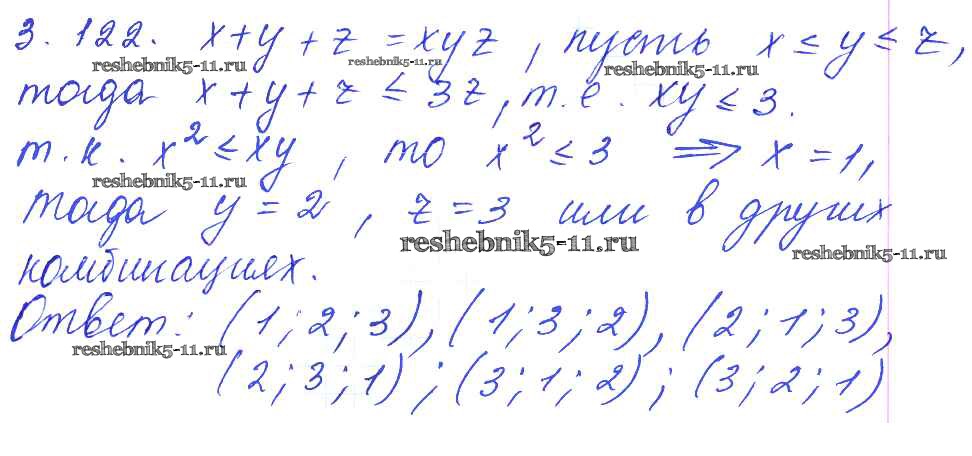 3.122. x+y+z=xyz, пусть x≤y≤z,
reshebnik5-11.ru reshebnik5-11.ru reshebnik5-11.ru
тогда x+y+z≤3z, т.е. xy≤3.
т.к. x²≤xy, то x²≤3 ⇒ x=1,
reshebnik5-11.ru
тогда y=2, z=3 или в других
reshebnik5-11.ru reshebnik5-11.ru
комбинациях.
Ответ: (1;2;3), (1;3;2), (2;1;3),
reshebnik5-11.ru
(2;3;1); (3;1;2); (3;2;1)